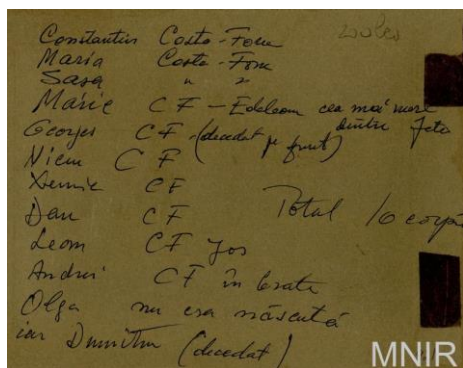 Constantin Costa-Foru
Maria Costa-Foru
Sasa " "
Marie CF - Edeleanu cea mai mare dintre fete
Georges CF - (decedat pe front)
CF
Xenia CF
Dan CF Total 10 copii
Leon CF jos
Andrei CF în brate
Olga nu era născută
iar Dumitru (decedat)
MNIR